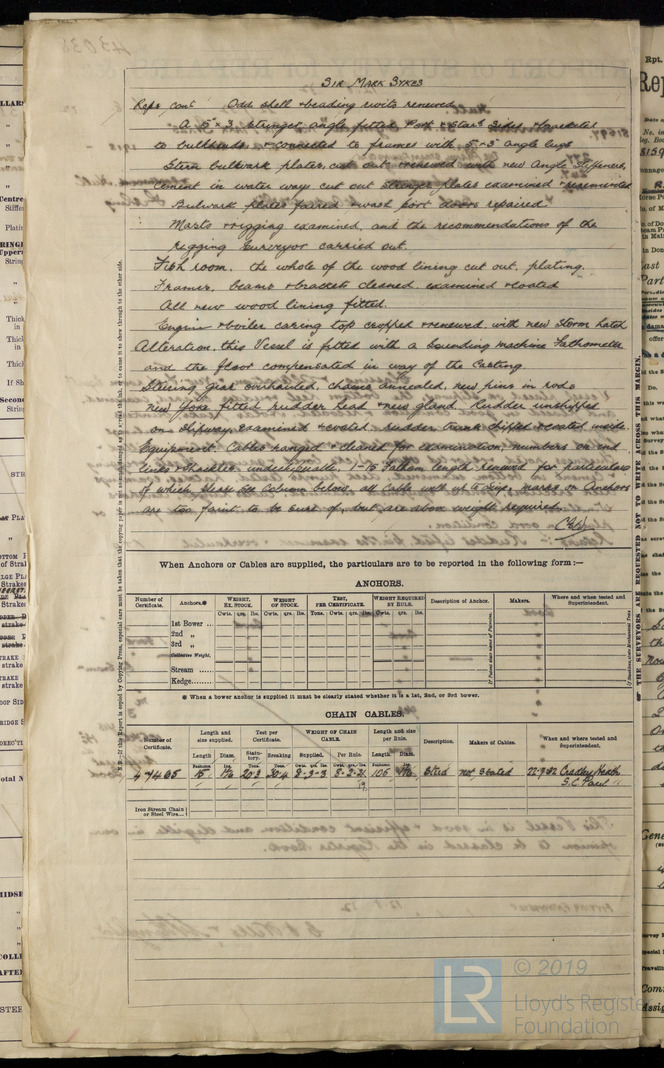 SIR MARK SYKES
Reps cont Odd shell & beading rivits renewed
A 5 × 3 stringer angle fitted Port & Starb sides & bracketed
to bulkheads & connected to frames with 5 × 3 angle lugs
Stern bulwark plates, cut out & renewed with new Angle Stiffeners,
Cement in water ways cut out stringer plates examined & recemented
Bulwark plates faired & wash port doors repaired
Masts & rigging examined, and the recommendations of the
rigging Surveyor carried out.
Fish room. the whole of the wood lining cut out, plating.
Frames, beams & brackets cleaned examined & coated
All new wood lining fitted.
Engine & boiler casing top cropped & renewed with new Storm hatch
Alteration. this Vessel is fitted with a Sounding machine Fathometer
and the floor compensated in way of the Casting.
Steering gear overhauled, chains annealed, new pins in rods
new fitted rudder head & new gland. Rudder unshipped
on Slipway, examined & coated. rudder trunk chipped & coated inside.
Equipment. Cables ranged & cleaned for examination, numbers on end
links & shackles undecipherable, 1-15 Fathom length renewed for particulars
of which please see Column below, all Cable well up to size, marks on Anchors
are too faint to be sure of, but are above weight required.
When Anchors or Cables are supplied, the particulars are to be reported in the following form:—
ANCHORS.
Number of Certificate. Anchors.* WEIGHT, EX. STOCK. WEIGHT OF STOCK. TEST, PER CERTIFICATE. WEIGHT REQUIRED BY RULE. Description of Anchor. Makers. Where and when tested and Superintendent.
Cwts. qrs. lbs. Cwts. qrs. lbs. Tons. Cwts. qrs. lbs. Cwts. qrs. lbs.
1st Bower ..
2nd „
3rd „
Collective Weight.
Stream ......
Kedge........
* When a bower anchor is supplied it must be clearly stated whether it is a 1st, 2nd, or 3rd bower.
CHAIN CABLES.
Number of Certificate. Length and size supplied. Test per Certificate. WEIGHT OF CHAIN CABLE. Length and size per Rule. Description. Makers of Cables. When and where tested and Superintendent.
Length Diam. Statutory. Breaking Supplied. Per Rule. Length Diam.
Fathoms Ins. Tons. Tons. Cwts. qrs. lbs. Cwts. qrs. lbs. Fathoms Ins.
47465 15 8-3-3 8-2-21 105 Stud not stated 22.9.32 Cradley Heath
S.C. Paul
Iron Stream Chain or Steel Wire...
THE SURVEYORS ARE REQUESTED NOT TO WRITE ACROSS THIS MARGIN.
© 2019
Lloyd's Register
Foundation
LR